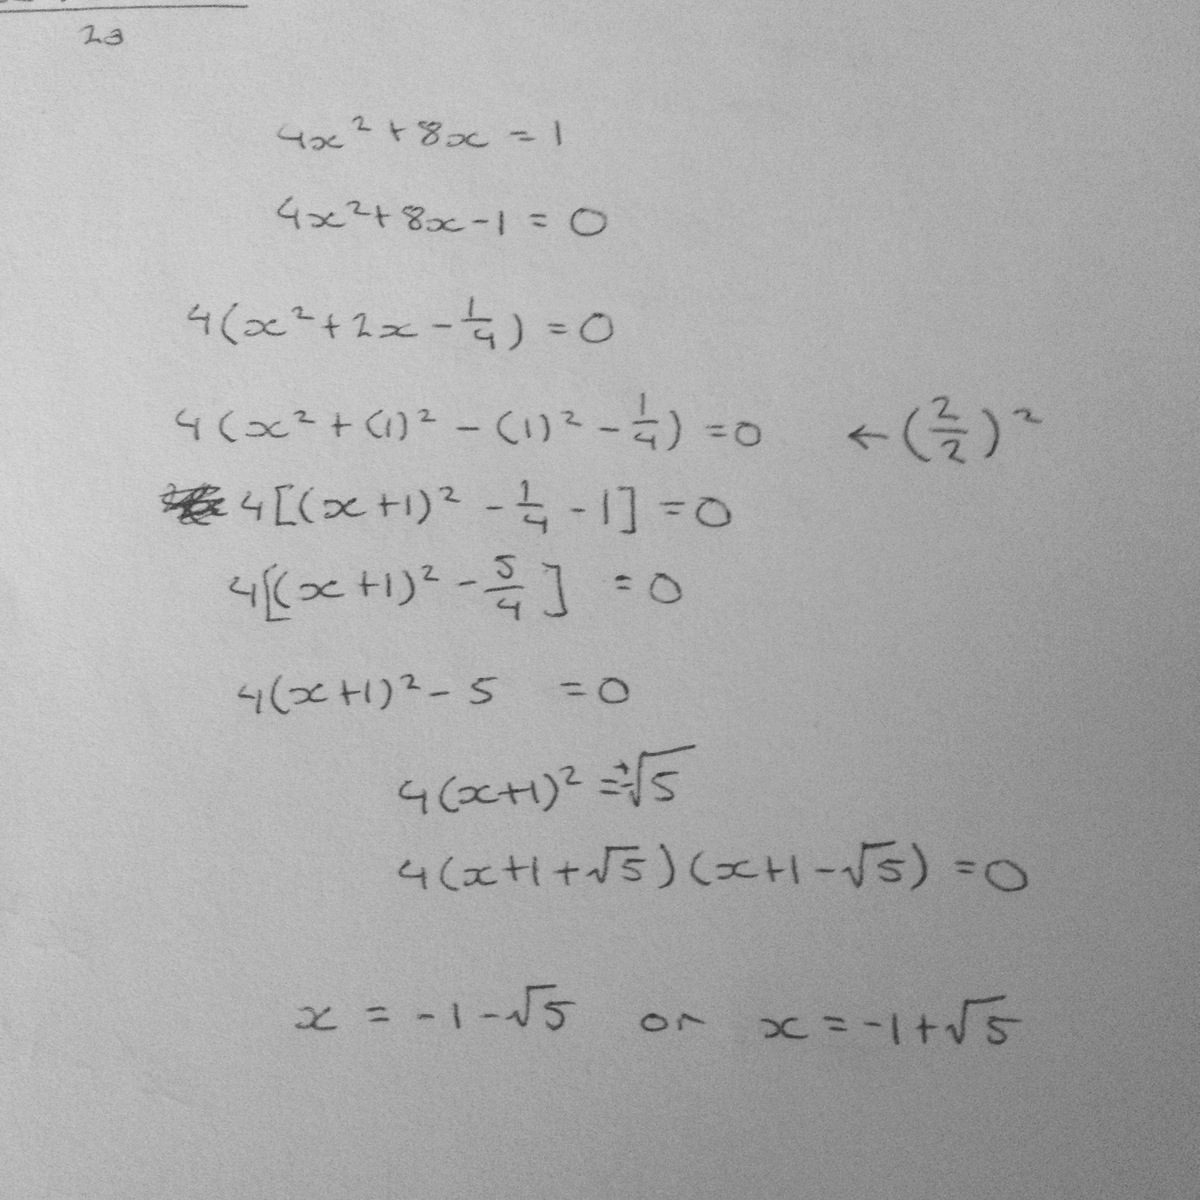 2a
4x² + 8x = 1
4x² + 8x - 1 = 0
4(x² + 2x - 1/4) = 0
4(x² + (1)² - (1)² - 1/4) = 0 ← (2/2)²
4[(x+1)² - 1/4 - 1] = 0
4[(x+1)² - 5/4] = 0
4(x+1)² - 5 = 0
4(x+1)² = ±√5
4(x+1+√5)(x+1-√5) = 0
x = -1-√5 or x = -1+√5